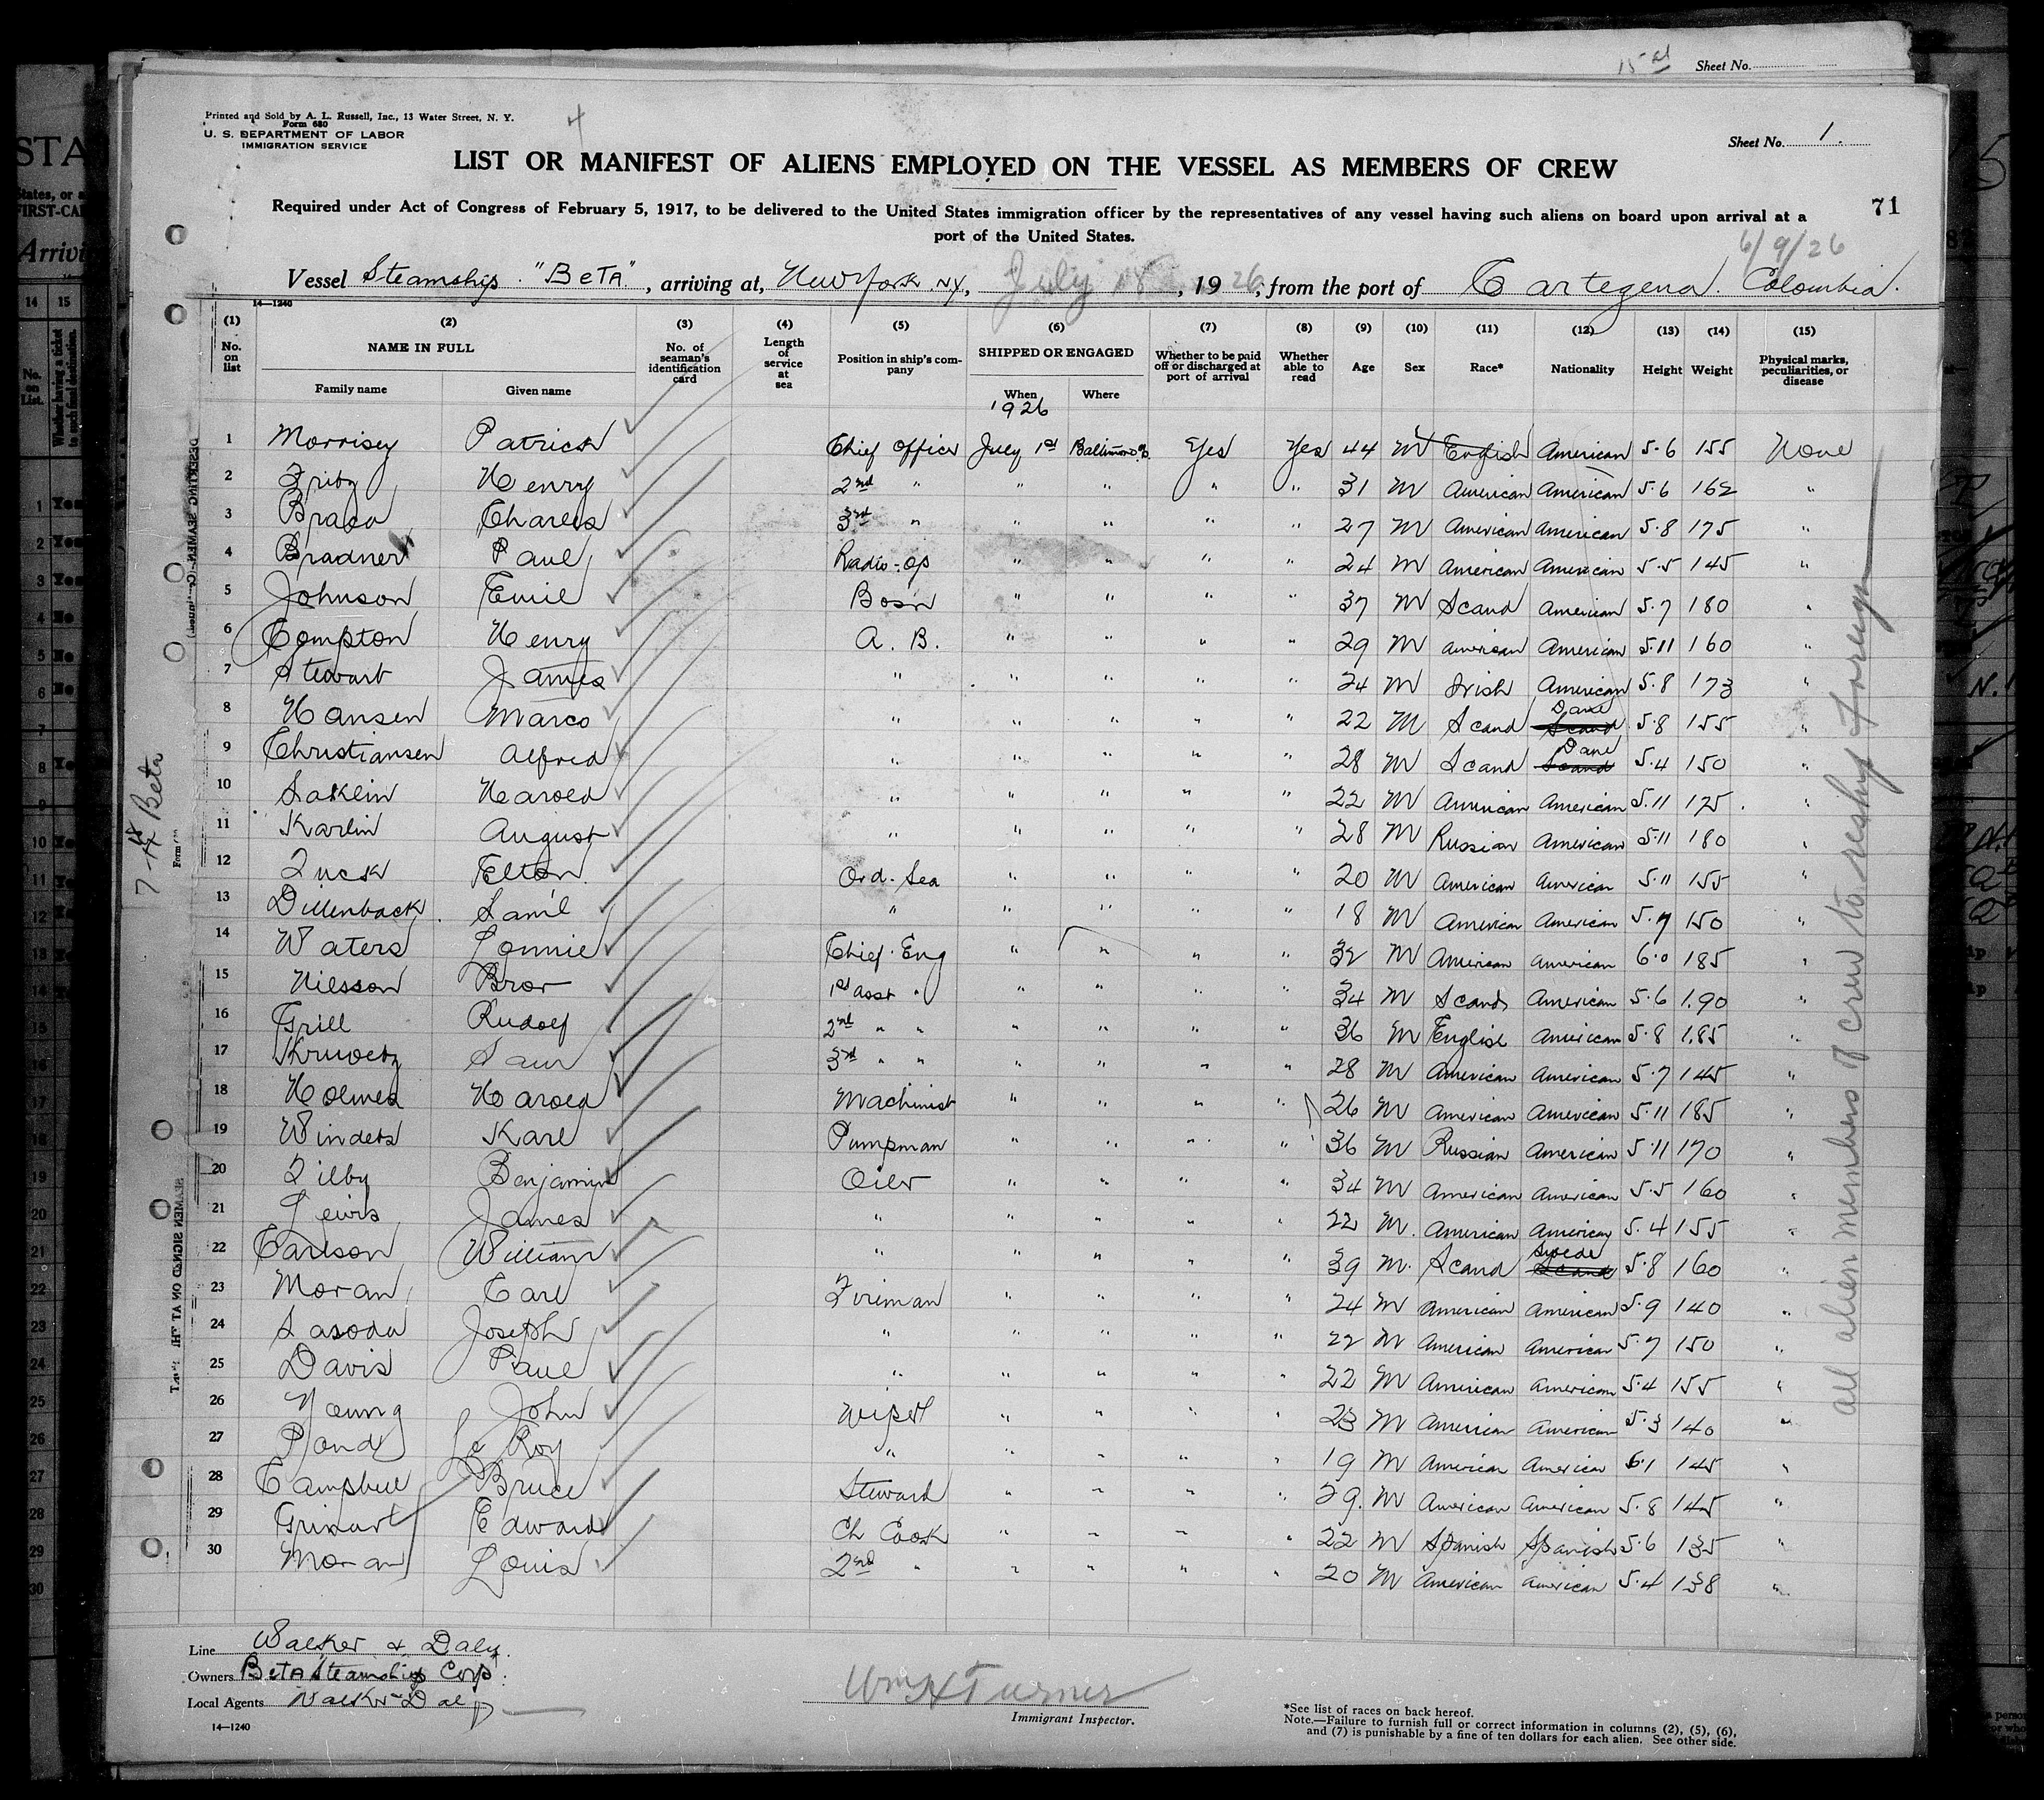 15 at Sheet No.
Printed and Sold by A. L. Russell, Inc., 13 Water Street, N. Y.
Form 680
U. S. DEPARTMENT OF LABOR
IMMIGRATION SERVICE
4
Sheet No. 1.
LIST OR MANIFEST OF ALIENS EMPLOYED ON THE VESSEL AS MEMBERS OF CREW
Required under Act of Congress of February 5, 1917, to be delivered to the United States immigration officer by the representatives of any vessel having such aliens on board upon arrival at a
port of the United States.
71
6/9/26
Vessel Steamship "BeTA", arriving at, New York NY, July 18, 1926, from the port of Cartegena. Colombia.
14—1240
(1) (2) (3) (4) (5) (6) (7) (8) (9) (10) (11) (12) (13) (14) (15)
No. on list NAME IN FULL Family name Given name No. of seaman's identification card Length of service at sea Position in ship's company SHIPPED OR ENGAGED When Where Whether to be paid off or discharged at port of arrival Whether able to read Age Sex Race* Nationality Height Weight Physical marks, peculiarities, or disease
1926
1 Morrisey Patrick Chief Officer July 1st Baltimore Yes Yes 44 M English American 5.6 155 None
2 Henry 2nd " " " " " 31 M American American 5.6 162 "
3 Charles 3rd " " " " " 27 M American American 5.8 175 "
4 Bradner Paul Radio-op " " " " 24 M American American 5.5 145 "
5 Johnson Emil Bosn " " " " 37 M Scand American 5.7 180 "
6 Compton Henry A. B. " " " " 29 M American American 5.11 160 "
7 Stewart James " " " " " 24 M Irish American 5.8 173 "
8 Hansen Marco " " " " " 22 M Scand Dane Scand 5.8 155 "
9 Christiansen Alfred " " " " " 28 M Scand Dane Scand 5.4 150 "
10 Saklin Harold " " " " " 22 M American American 5.11 175 "
11 Karlin August " " " " " 28 M Russian American 5.11 180 "
12 Elton Ord. Sea " " " " 20 M American American 5.11 155 "
13 Dillenback Saml " " " " " 18 M American American 5.7 150 "
14 Waters Lonnie Chief Eng " " " " 32 M American American 6.0 185 "
15 Nilsson Bror 1st asst " " " " " 34 M Scand American 5.6 190 "
16 Grill Rudolf 2nd " " " " " " 36 M English American 5.8 185 "
17 Sam 3rd " " " " " " 28 M American American 5.7 145 "
18 Holmes Harold Machinist " " " " 26 M American American 5.11 185 "
19 Winders Karl Pumpman " " " " 36 M Russian American 5.11 170 "
20 Benjamin Oiler " " " " 34 M American American 5.5 160 "
21 Lewis James " " " " " 22 M American American 5.4 155 "
22 Carlson William " " " " " 39 M Scand Swede Scand 5.8 160 "
23 Moran Earl Fireman " " " " 24 M American American 5.9 140 "
24 Sasoda Joseph " " " " " 22 M American American 5.7 150 "
25 Davis Paul " " " " " 22 M American American 5.4 155 "
26 Young John Wiper " " " " 23 M American American 5.3 140 "
27 Pond Le Roy " " " " " 19 M American American 6.1 145 "
28 Campbell Bruce Steward " " " " 29 M American American 5.8 145 "
29 Edward Ch Cook " " " " 22 M Spanish Spanish 5.6 135 "
30 Moran Louis 2nd " " " " " 20 M American American 5.4 138 "
all alien members of crew to reship foreign
Beta
Line Walker & Daly.
Owners BeTA Steamship Corp.
Local Agents Walker-Daly
14—1240
Wm H Turner
Immigrant Inspector.
*See list of races on back hereof.
Note.—Failure to furnish full or correct information in columns (2), (5), (6),
and (7) is punishable by a fine of ten dollars for each alien. See other side.